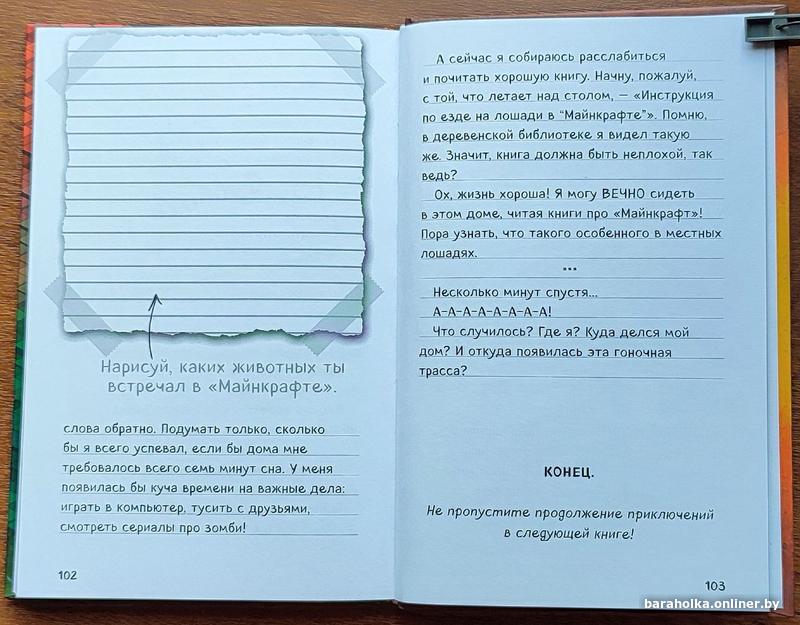 Нарисуй, каких животных ты
встречал в «Майнкрафте».
слова обратно. Подумать только, сколько
бы я всего успевал, если бы дома мне
требовалось всего семь минут сна. У меня
появилась бы куча времени на важные дела:
играть в компьютер, тусить с друзьями,
смотреть сериалы про зомби!
102
А сейчас я собираюсь расслабиться
и почитать хорошую книгу. Начну, пожалуй,
с той, что летает над столом, — «Инструкция
по езде на лошади в “Майнкрафте”». Помню,
в деревенской библиотеке я видел такую
же. Значит, книга должна быть неплохой, так
ведь?
Ох, жизнь хороша! Я могу ВЕЧНО сидеть
в этом доме, читая книги про «Майнкрафт»!
Пора узнать, что такого особенного в местных
лошадях.
***
Несколько минут спустя...
А-А-А-А-А-А-А-А!
Что случилось? Где я? Куда делся мой
дом? И откуда появилась эта гоночная
трасса?
КОНЕЦ.
Не пропустите продолжение приключений
в следующей книге!
103
baraholka.onliner.by